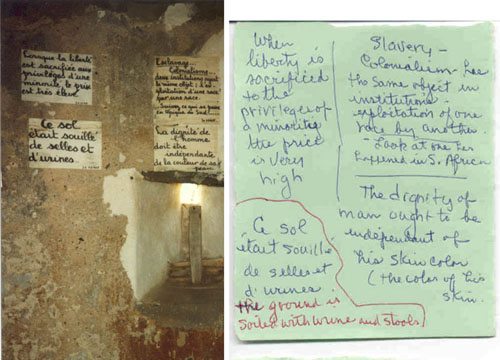 Lorsque la liberté
est sacrifiée aux
privilèges d'une
minorité, le prix
est très élevé.
Esclavage -
Colonialisme -
deux institutions ayant
le même objet: l'ex-
ploitation d'une race
par une race.
ce qui se passe
en Afrique du Sud
Ce sol
était souillé
de selles et
d'urines.
La dignité de
l'homme
doit être
indépendante
de la couleur de sa
peau
When
liberty is
sacrificed
to the
privileges of
a minorities
the price
is very
high
Slavery -
Colonialism has
the same object in
institutions -
exploitation of one
race by another.
- Look at
happened in S. Africa
The dignity of
man ought to be
independent of
his skin color
(the color of his
skin.
Ce sol
était souillé
de selles et
d'urines
the ground is
soiled with urine and stools